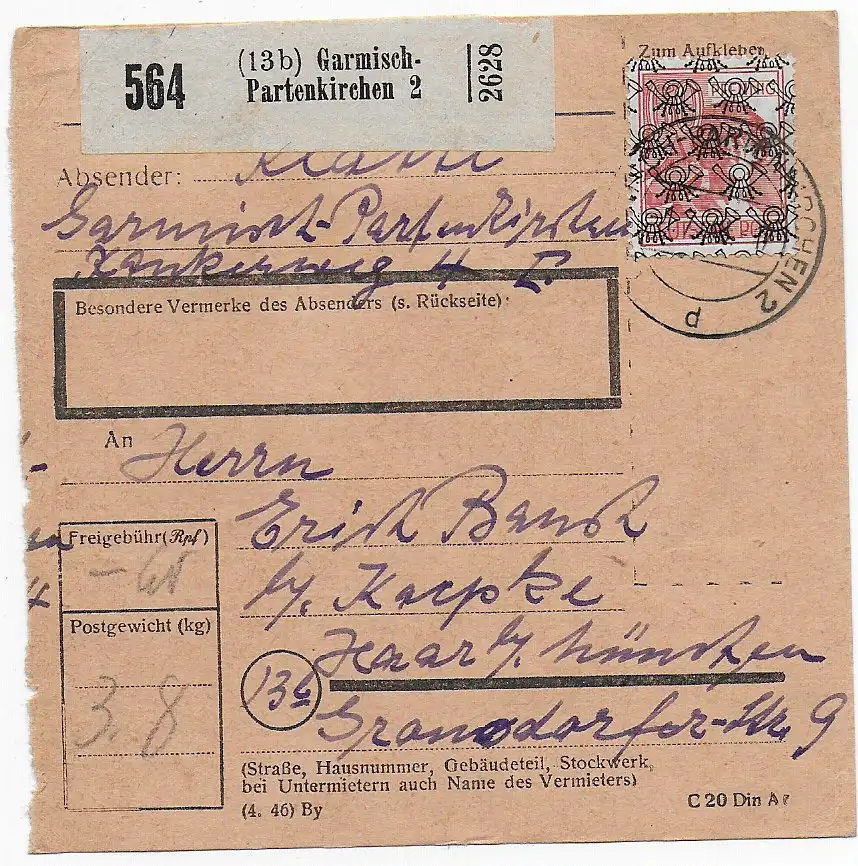 564
(13b) Garmisch-
Partenkirchen 2
2628
Zum Aufkleben
PFENNIG
KIRCHEN 2
d
Absender:
Garmisch-Partenkirchen
Zankerweg 4 I.
Besondere Vermerke des Absenders (s. Rückseite):
An
Herrn
Erich
b/.
Haar b/. München
13b
str. 9
Freigebühr (Rpf)
Postgewicht (kg)
3.8
(Straße, Hausnummer, Gebäudeteil, Stockwerk,
bei Untermietern auch Name des Vermieters)
(4. 46) By
C 20 Din A